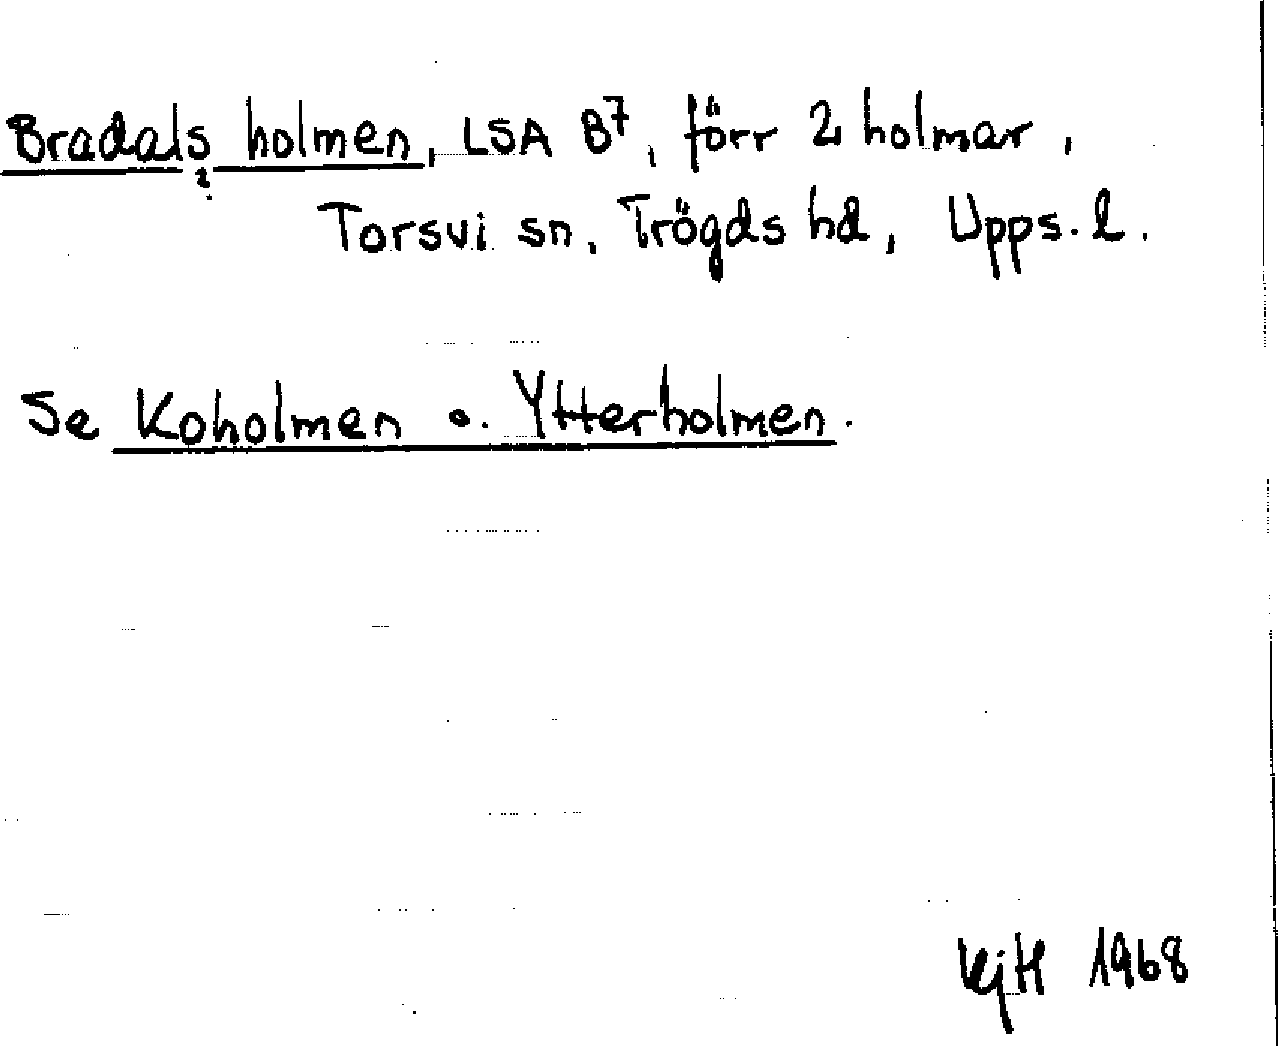 Bradals holmen, LSA B7, förr 2 holmar,
?
Torsvi sn, Trögds hd, Upps. l.
Se Koholmen o. Ytterholmen.
KjH 1968